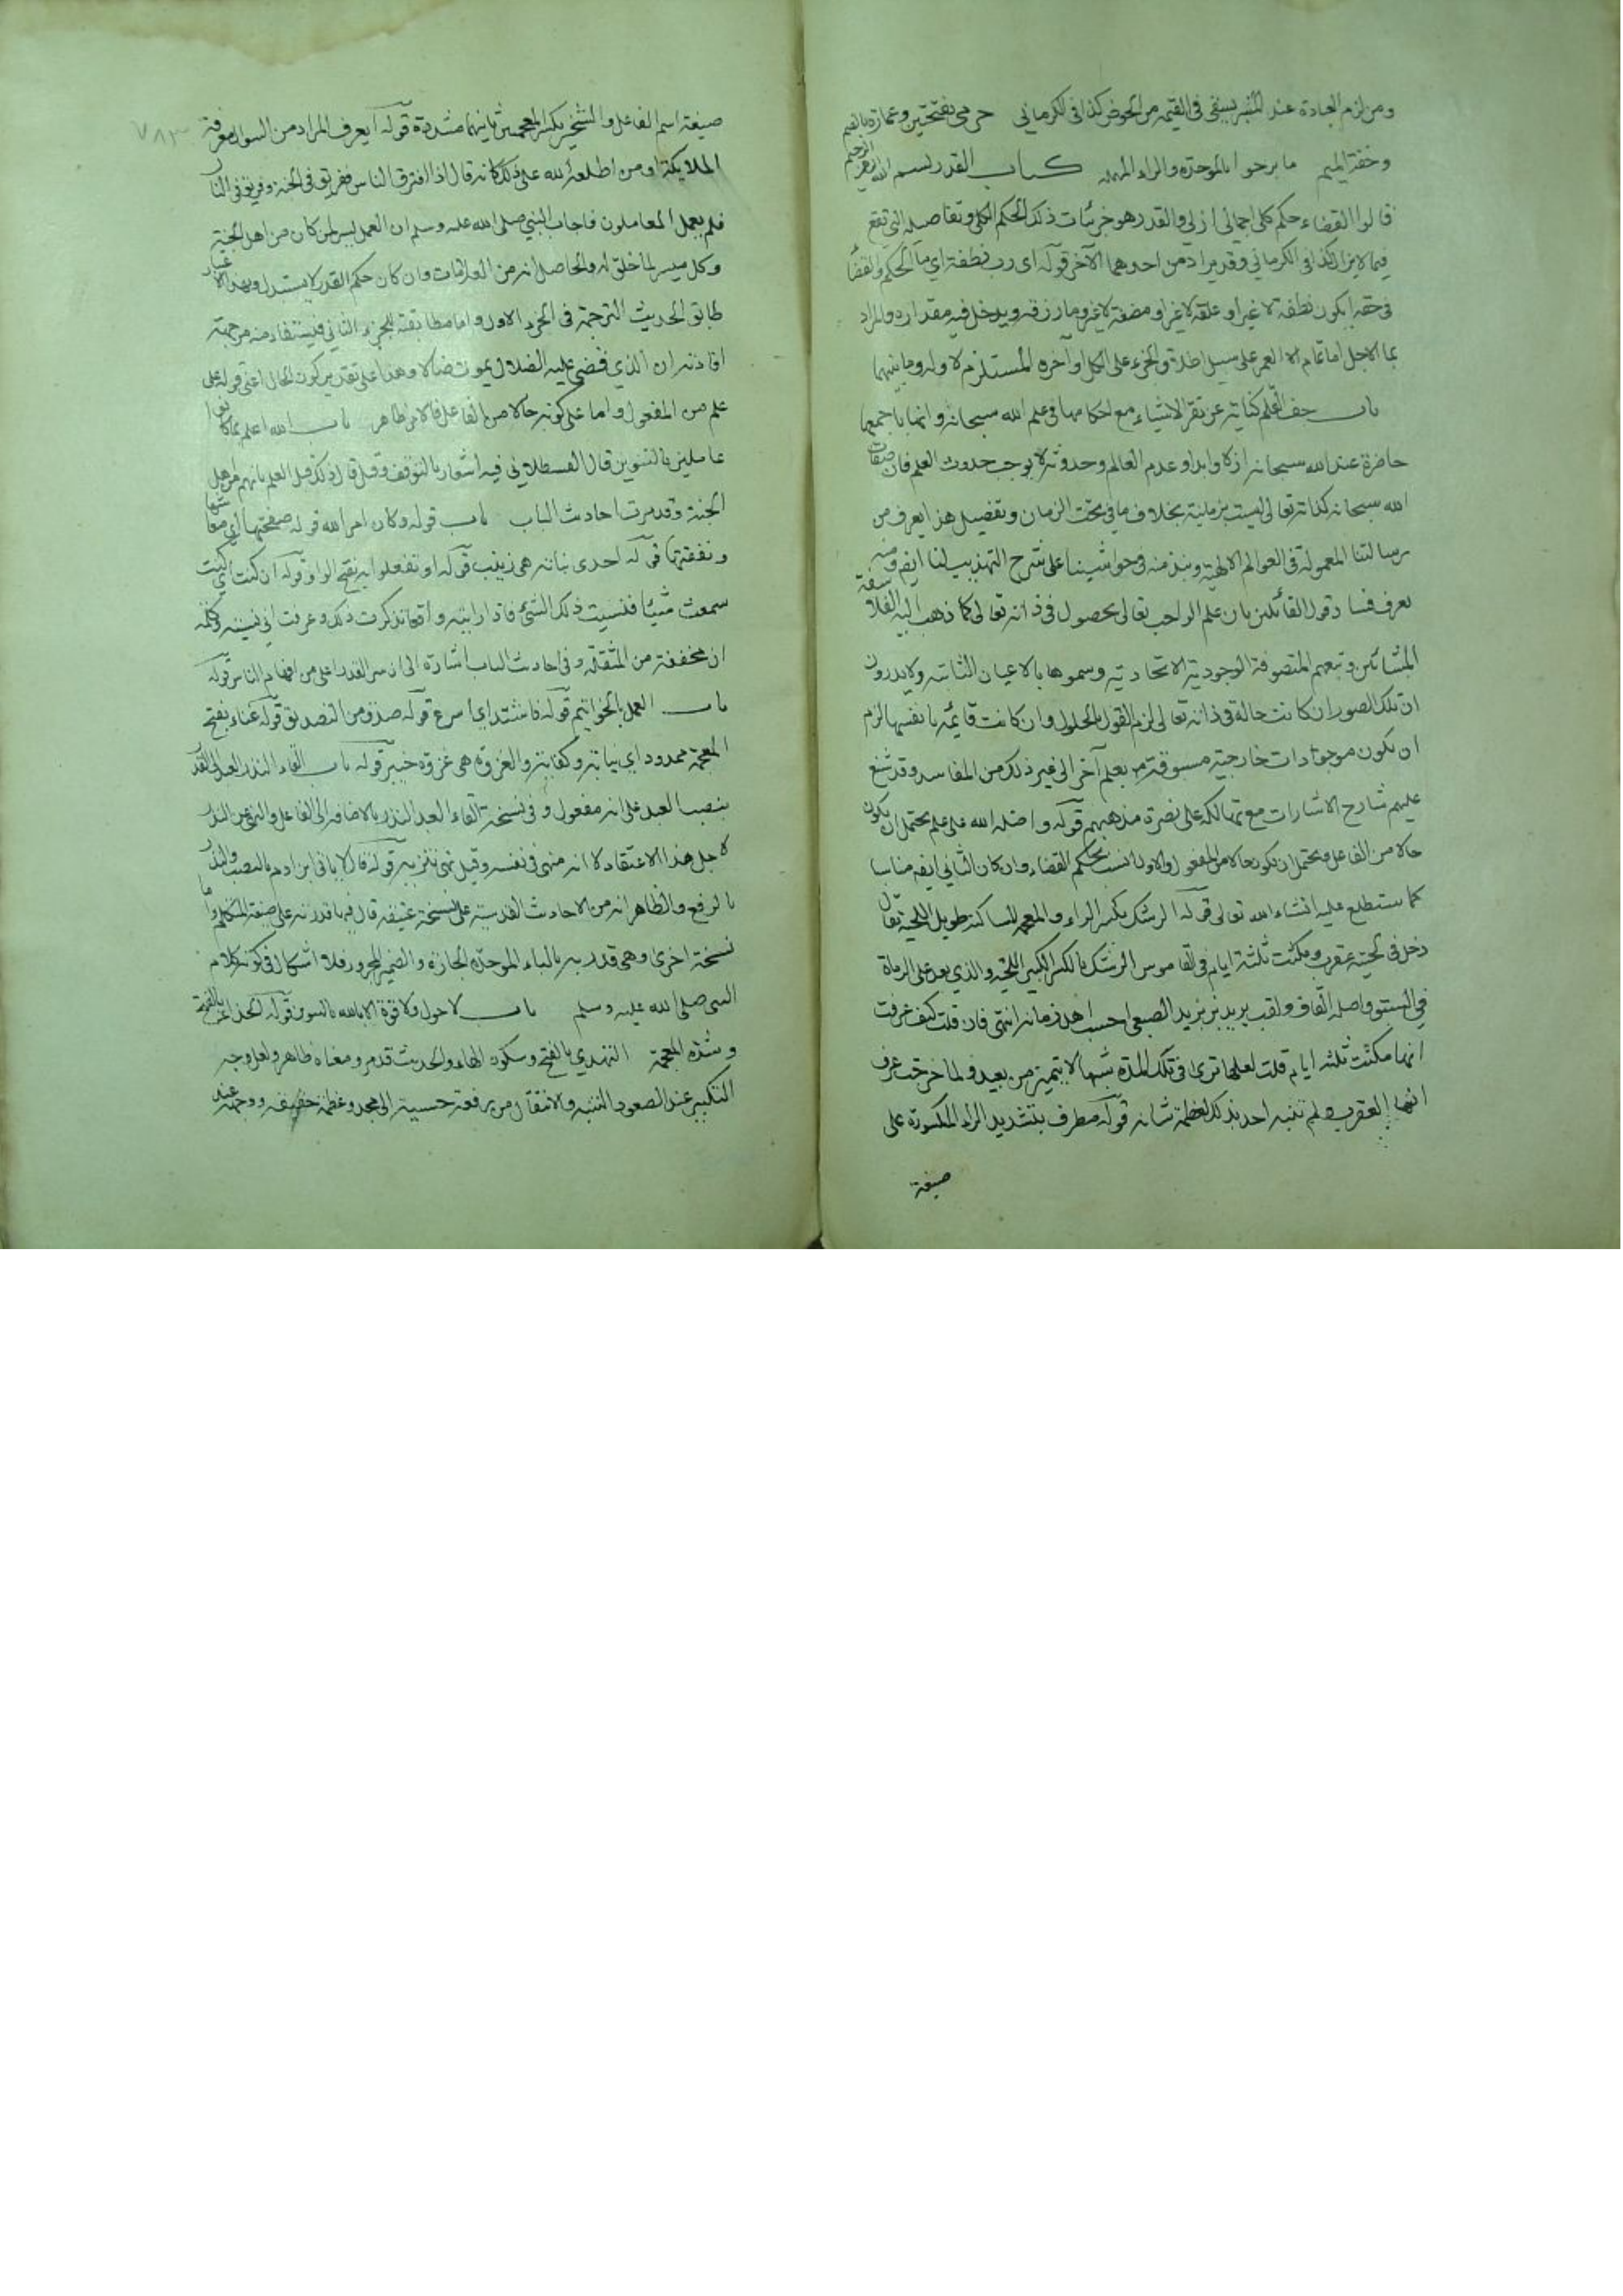 ومن لزم العبادة عند المنبر يسقى في القيمه من الحوض كذا في الكرماني حرمى بفتحتين وعمارة بالضم
وخفة الميم ما برحوا بالموحدة والراء المهمله كتاب القدر بسم الله الرحمن الرحيم
قالوا القضاء حكم كلى اجمالى ازلى والقدر هو جزئيات ذلك الحكم الكلى وتفاصيله التى تقع
فيما لا يزال كذا في الكرماني وقد يراد من احدهما الآخر قوله اى رب نطفة اى ما الحكم والقضاء
في حقه ايكون نطفة لا غير او علقة لا غير او مضغة لا غير وما رزقه ويدخل فيه مقداره والمراد
بما الاجل اما تمام العمر على سبيل اطلاق الجزء على الكل او آخره المستلزم لاوله وما بينهما
باب جف القلم كناية عن تقرر الاشياء مع احكامها في علم الله سبحانه وانها باجمعها
حاضرة عند الله سبحانه ازلا وابدا وعدم العالم وحدوثه لا يوجب حدوث العلم فان صفات
الله سبحانه كذاته تعالى ليست بزمانية بخلاف ما في تحت الزمان وتفصيل هذا يعرف من
رسالتنا المعمولة في العوالم الالهية ونبذ منه في حواشينا على شرح التهذيب لنا ايضا ومنه
يعرف فساد قول القائلين بان علم الواجب تعالى بحصول في ذاته تعالى كما ذهب اليه الفلاسفة
المشائين وتبعهم المتصوفة الوجودية الاتحادية وسموها بالاعيان الثابتة ولا يدرون
ان تلك الصور ان كانت حالة في ذاته تعالى لزم القول بالحلول وان كانت قائمة بانفسها لزم
ان يكون موجودات خارجية مسبوقة بعلم آخر الى غير ذلك من المفاسد وقد شنع
عليهم شارح الاشارات مع تهالكه على نصرة مذهبهم قوله واضله الله على علم يحتمل ان يكون
حالا من الفاعل ويحتمل ان يكون حالا من المفعول والاول انسب بحكم القضاء وان كان الثاني ايضا مناسبا
كما ستطلع عليه انشاء الله تعالى قوله الرشك بكسر الراء والمعجمة الساكنة طويل اللحية يقال
دخل في لحيته عقرب ومكثت ثلثة ايام وفي القاموس الرشك بالكسر الكبير اللحية والذي يعد على الرماة
في السبق واصله القاف ولقب يزيد بن يزيد الضبعى احسب اهل زمانه انتهى فان قلت كيف عرفت
انها مكثت ثلثة ايام قلت لعلها ترى في تلك المدة شبها لا يتميز من بعيد ولما خرجت عرف
انها العقرب ولم تنبه احد بذلك لعظمة شانه قوله مطرف بتشديد الراء المكسورة على
صيغة
صيغة اسم الفاعل والشخير بكسر المعجمتين ثانيتهما مشددة قوله ايعرف المراد من السوال معرفة
الملايكة او من اطلعه الله على ذلك كانه قال اذا افترق الناس ففريق في الجنة وفريق في النار
فلم يعمل العاملون فاجاب النبي صلى الله عليه وسلم ان العمل ليس لمن كان من اهل الجنة
وكل ميسر لما خلق له والحاصل انه من العلامات وان كان حكم القدر لا يتبدل وبهذا الاعتبار
طابق الحديث الترجمة في الجزء الاول واما مطابقته للجزء الثاني فيستفاد منه من جهة
افادته ان الذي قضى عليه الضلال يموت ضالا وهذا على تقدير كون الحال اعنى قوله على
علم من المفعول واما على كونه حالا من الفاعل فالامر ظاهر باب الله اعلم بما كانوا
عاملين بالتنوين قال القسطلاني فيه اشعار بالتوقف وقيل قال ذلك قبل العلم بانهم من اهل
الجنة وقد مرت احاديث الباب باب قوله وكان امر الله قوله صحفتها اى معاشها
ونفقتها قوله احدى بناته هى زينب قوله او تفعلوا بفتح الواو قوله ان كنت اى كنت
سمعت شيئا فنسيت ذلك الشئ فاذا رايته واقعا تذكرت ذلك وعرفت انى نسيته وكلمة
ان مخففة من المثقلة وفي احاديث الباب اشارة الى ان سر القدر اعلى من افهام الناس قوله
باب العمل بالخواتيم قوله فاشتد اى اسرع قوله صدق من التصديق قوله غناء بفتح
المعجمة ممدود اى نيابة وكفاية والغزوة هى غزوة خيبر قوله باب القاء النذر العبد الى القدر
بنصب العبد على انه مفعول وفي نسخة القاء العبد النذر بالاضافة الى الفاعل والنهى عن النذر
لاجل هذا الاعتقاد لا انه منهى في نفسه وقيل نهى تنزيه قوله قال لا ياتى ابن ادم بالنصب والنذر
بالرفع والظاهر انه من الاحاديث القدسية على نسخة عتيقة قال فيها قدرته على صيغة المتكلم واما
نسخة اخرى وهى قدر به بالباء الموحدة الجارة والضمير المجرور فلا اشكال في كونه كلام
النبى صلى الله عليه وسلم باب لا حول ولا قوة الا بالله بالتنوين قوله الحذاء بالفتح
وشدة المعجمة النهدي بالفتح وسكون الهاء والحديث قد مر ومعناه ظاهر ولعل وجه
التكبير عند الصعود التنبه والانتقال من رفعة حسية الى مجد وعظمة حقيقية ووجهه عند